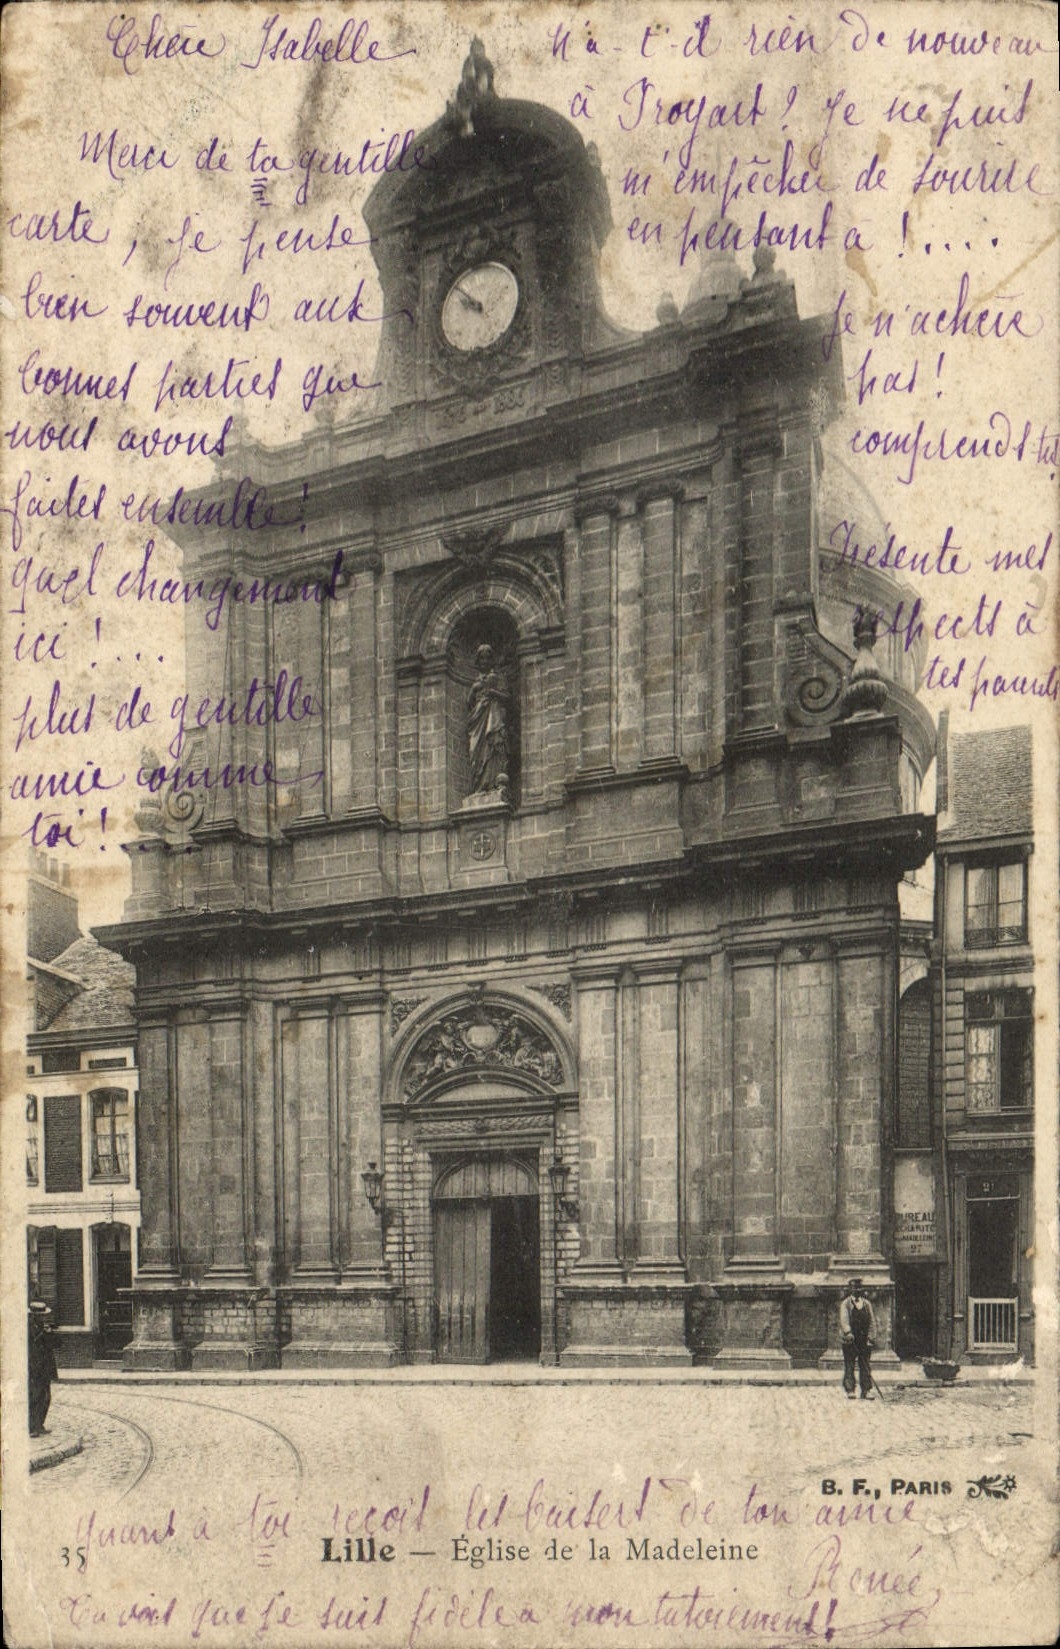 Chère Isabelle
Merci de ta gentille
carte, je pense
bien souvent aux
bonnes parties que
nous avons
faites ensemble!
quel changement
ici!....
plus de gentille
amie comme
toi!....
N'a-t-il rien de nouveau
à Froyart? Je ne puis
m'empêcher de sourire
en pensant à!....
Je n'achève
pas!
comprends-tu
Présente mes
respects à
tes parents
BUREAU
27
B. F., PARIS
Quant à toi reçois les baisers de ton amie
35 Lille — Église de la Madeleine
Renée
Tu vois que je suis fidèle à mon tutoiement!